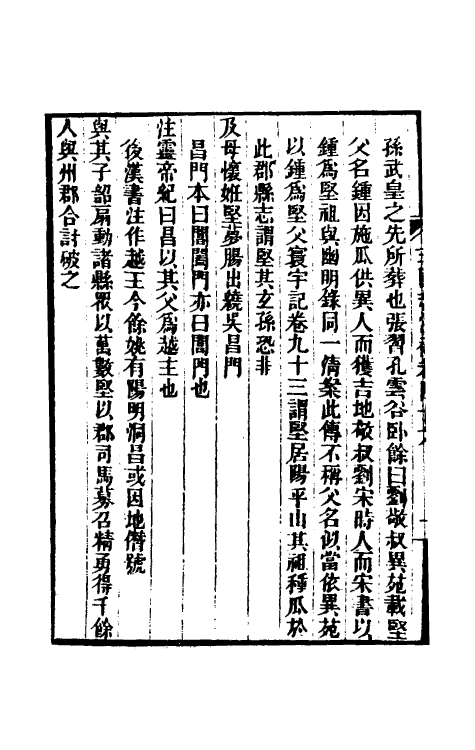 孫武皇之先所葬也張習孔雲谷臥餘曰劉敬叔異苑載堅
父名鍾因施瓜供異人而獲吉地敬叔劉宋時人而宋書以
鍾爲堅祖與幽明錄同一儔案此傳不稱父名似當依異苑
以鍾爲堅父寰宇記卷九十三謂堅居陽平山其祖種瓜於
此郡縣志謂堅其玄孫恐非
及母懷姙堅夢腸出繞吳昌門
昌門本曰閶闔門亦曰閶門也
注靈帝紀曰昌以其父爲越王也
後漢書注作越王今餘姚有陽明洞昌或因地僭號
與其子韶扇動諸縣眾以萬數堅以郡司馬募召精勇得千餘
人與州郡合討破之